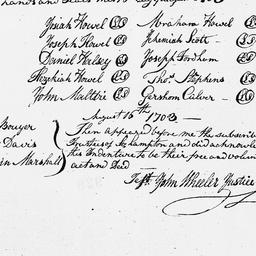 Josiah Howel LS Abraham Howel LS
Joseph Howel LS Jehemiah Scott - LS
Daniel Halsey LS Joseph Fordham LS
Hezekiah Howel LS Thos. Stephens LS
John Maltbie LS Gershom Culver - LS
August 16th 1703 -
Bowyer Then appeared before me the subscrib
Davis Trustees of Sthampton and did acknowle
in Marshall this Indenture to be their free and volun
act and Deed
Test. John Wheeler Justice